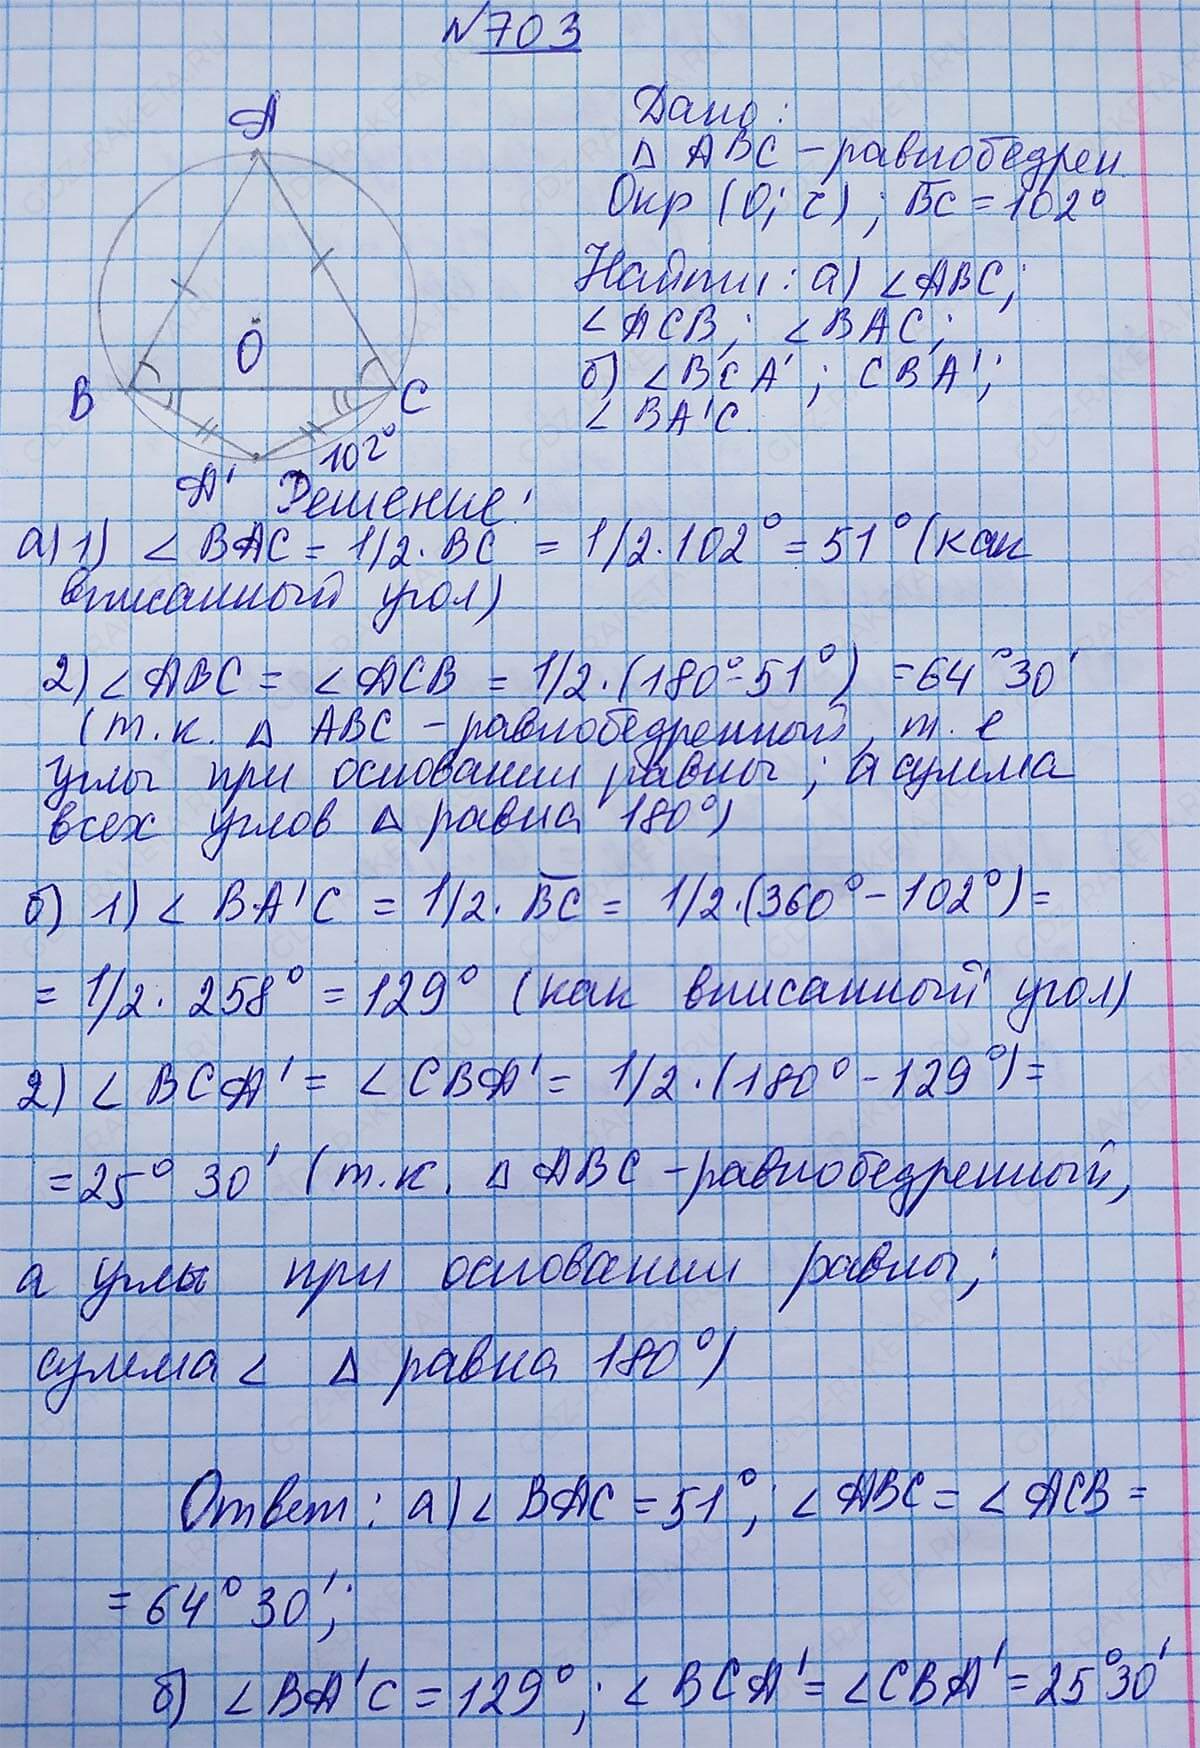 №703
A
Дано:
Δ ABC – равнобедрен
Окр (O; r); BC = 102°
Найти: а) ∠ABC;
∠ACB; ∠BAC;
б) ∠BCA'; CBA';
∠BA'C.
O
B
C
102°
A'
Решение:
а) 1) ∠BAC = 1/2 · BC = 1/2 · 102° = 51° (как
вписанный угол)
2) ∠ABC = ∠ACB = 1/2 · (180° - 51°) = 64°30'
(т.к. Δ ABC – равнобедренный, т. е
углы при основании равны; а сумма
всех углов Δ равна 180°)
б) 1) ∠BA'C = 1/2 · BC = 1/2 · (360° - 102°) =
= 1/2 · 258° = 129° (как вписанный угол)
2) ∠BCA' = ∠CBA' = 1/2 · (180° - 129°) =
= 25° 30' (т.к. Δ ABC – равнобедренный,
а углы при основании равны;
сумма ∠ Δ равна 180°)
Ответ: а) ∠BAC = 51°; ∠ABC = ∠ACB =
= 64° 30';
б) ∠BA'C = 129°; ∠BCA' = ∠CBA' = 25°30'